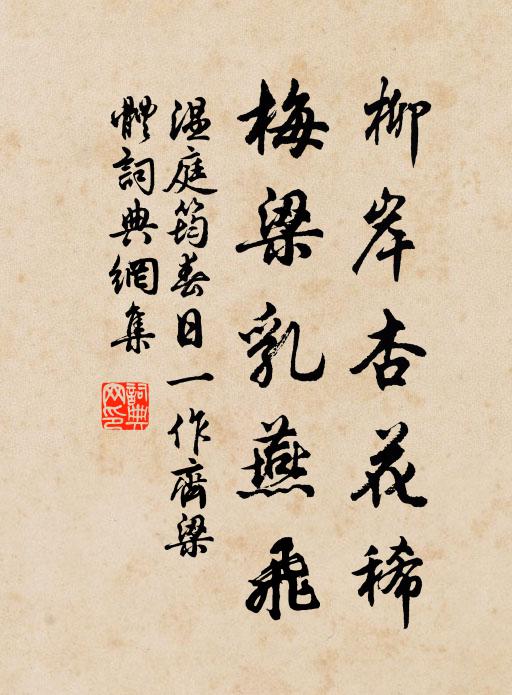 柳岸杏花稀
梅梁乳燕飛
溫庭筠春日一作齊梁
體詞典網集
詞典
網印